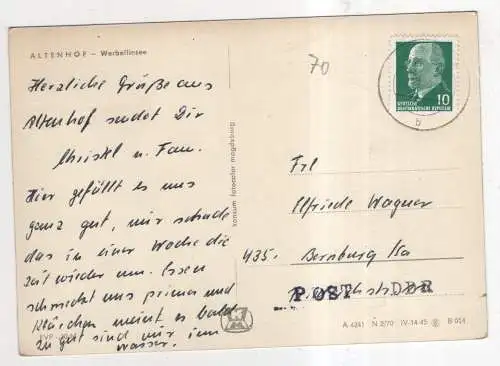 ALTENHOF – Werbellinsee
Herzliche Grüße aus
Altenhof sendet Dir
Christl u. Fam.
Hier gefällt es uns
ganz gut, nur schade
das in einer Woche die
Zeit wieder um. Essen
schmeckt uns prima und
Klärchen meint es bald
zu gut sind nur im
Wasser.
konsum fotocolor magdeburg
70
10
DEUTSCHE
DEMOKRATISCHE REPUBLIK
b
Frl
Elfriede Wagner
435. Bernburg /Sa
POST DDR
A 4241 N 2/70 IV-14-45 B 014